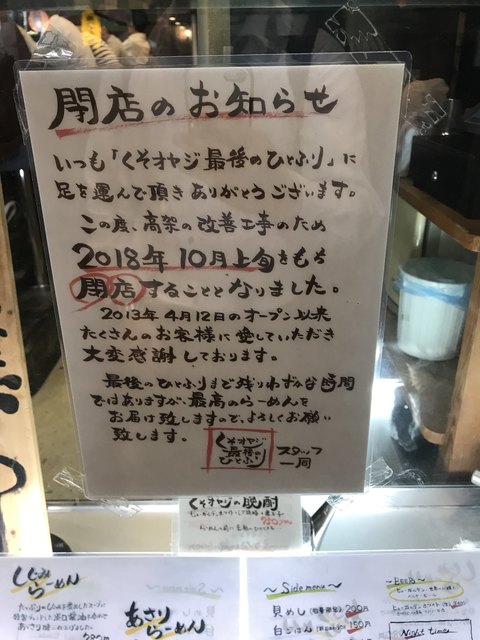 閉店のお知らせ
いつも「くそオヤジ最後のひとふり」に
足を運んで頂きありがとうございます。
この度、高架の改善工事のため
2018年10月上旬をもち
閉店することとなりました。
2013年4月12日のオープン以来
たくさんのお客様に愛していただき
大変感謝しております。
最後のひとふりまで残りわずかな時間
ではありますが、最高のらーめんを
お届け致しますので、よろしくお願い
致します。
くそオヤジ
最後の
ひとふり
スタッフ
一同
くそオヤジの晩酌
しじみ
らーめん
あさり
らーめん
Side menu
貝めし
200円
白ごはん
150円
BEER
Night Time